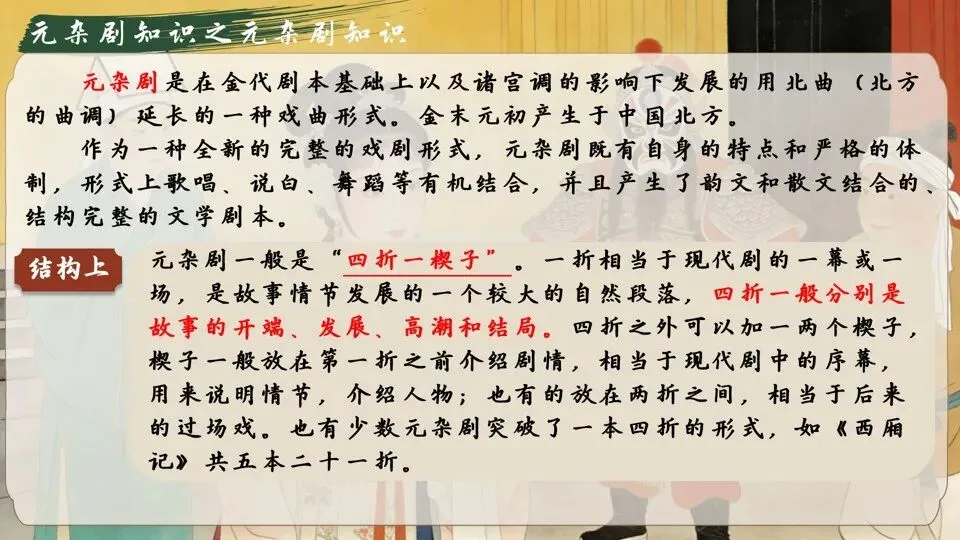 元杂剧知识之元杂剧知识
元杂剧是在金代剧本基础上以及诸宫调的影响下发展的用北曲（北方
的曲调）延长的一种戏曲形式。金末元初产生于中国北方。
作为一种全新的完整的戏剧形式，元杂剧既有自身的特点和严格的体
制，形式上歌唱、说白、舞蹈等有机结合，并且产生了韵文和散文结合的、
结构完整的文学剧本。
结构上
元杂剧一般是“四折一楔子”。一折相当于现代剧的一幕或一
场，是故事情节发展的一个较大的自然段落，四折一般分别是
故事的开端、发展、高潮和结局。四折之外可以加一两个楔子，
楔子一般放在第一折之前介绍剧情，相当于现代剧中的序幕，
用来说明情节，介绍人物；也有的放在两折之间，相当于后来
的过场戏。也有少数元杂剧突破了一本四折的形式，如《西厢
记》共五本二十一折。